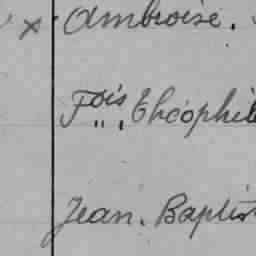 x Ambroise.
Fois Théophil
Jean. Baptis